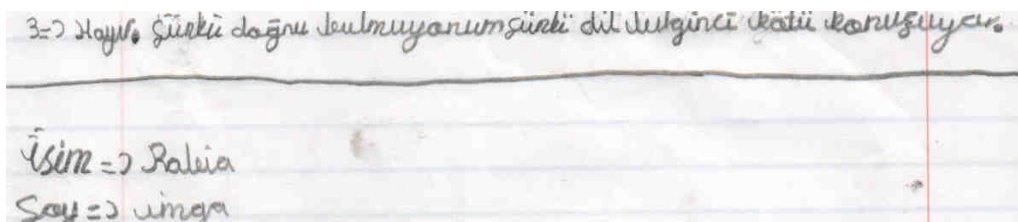 3=) Hayır. Çünkü doğru bulmuyorum çünkü dil bilginci kötü konuşuyor.
İsim => Rabia
Soy =>